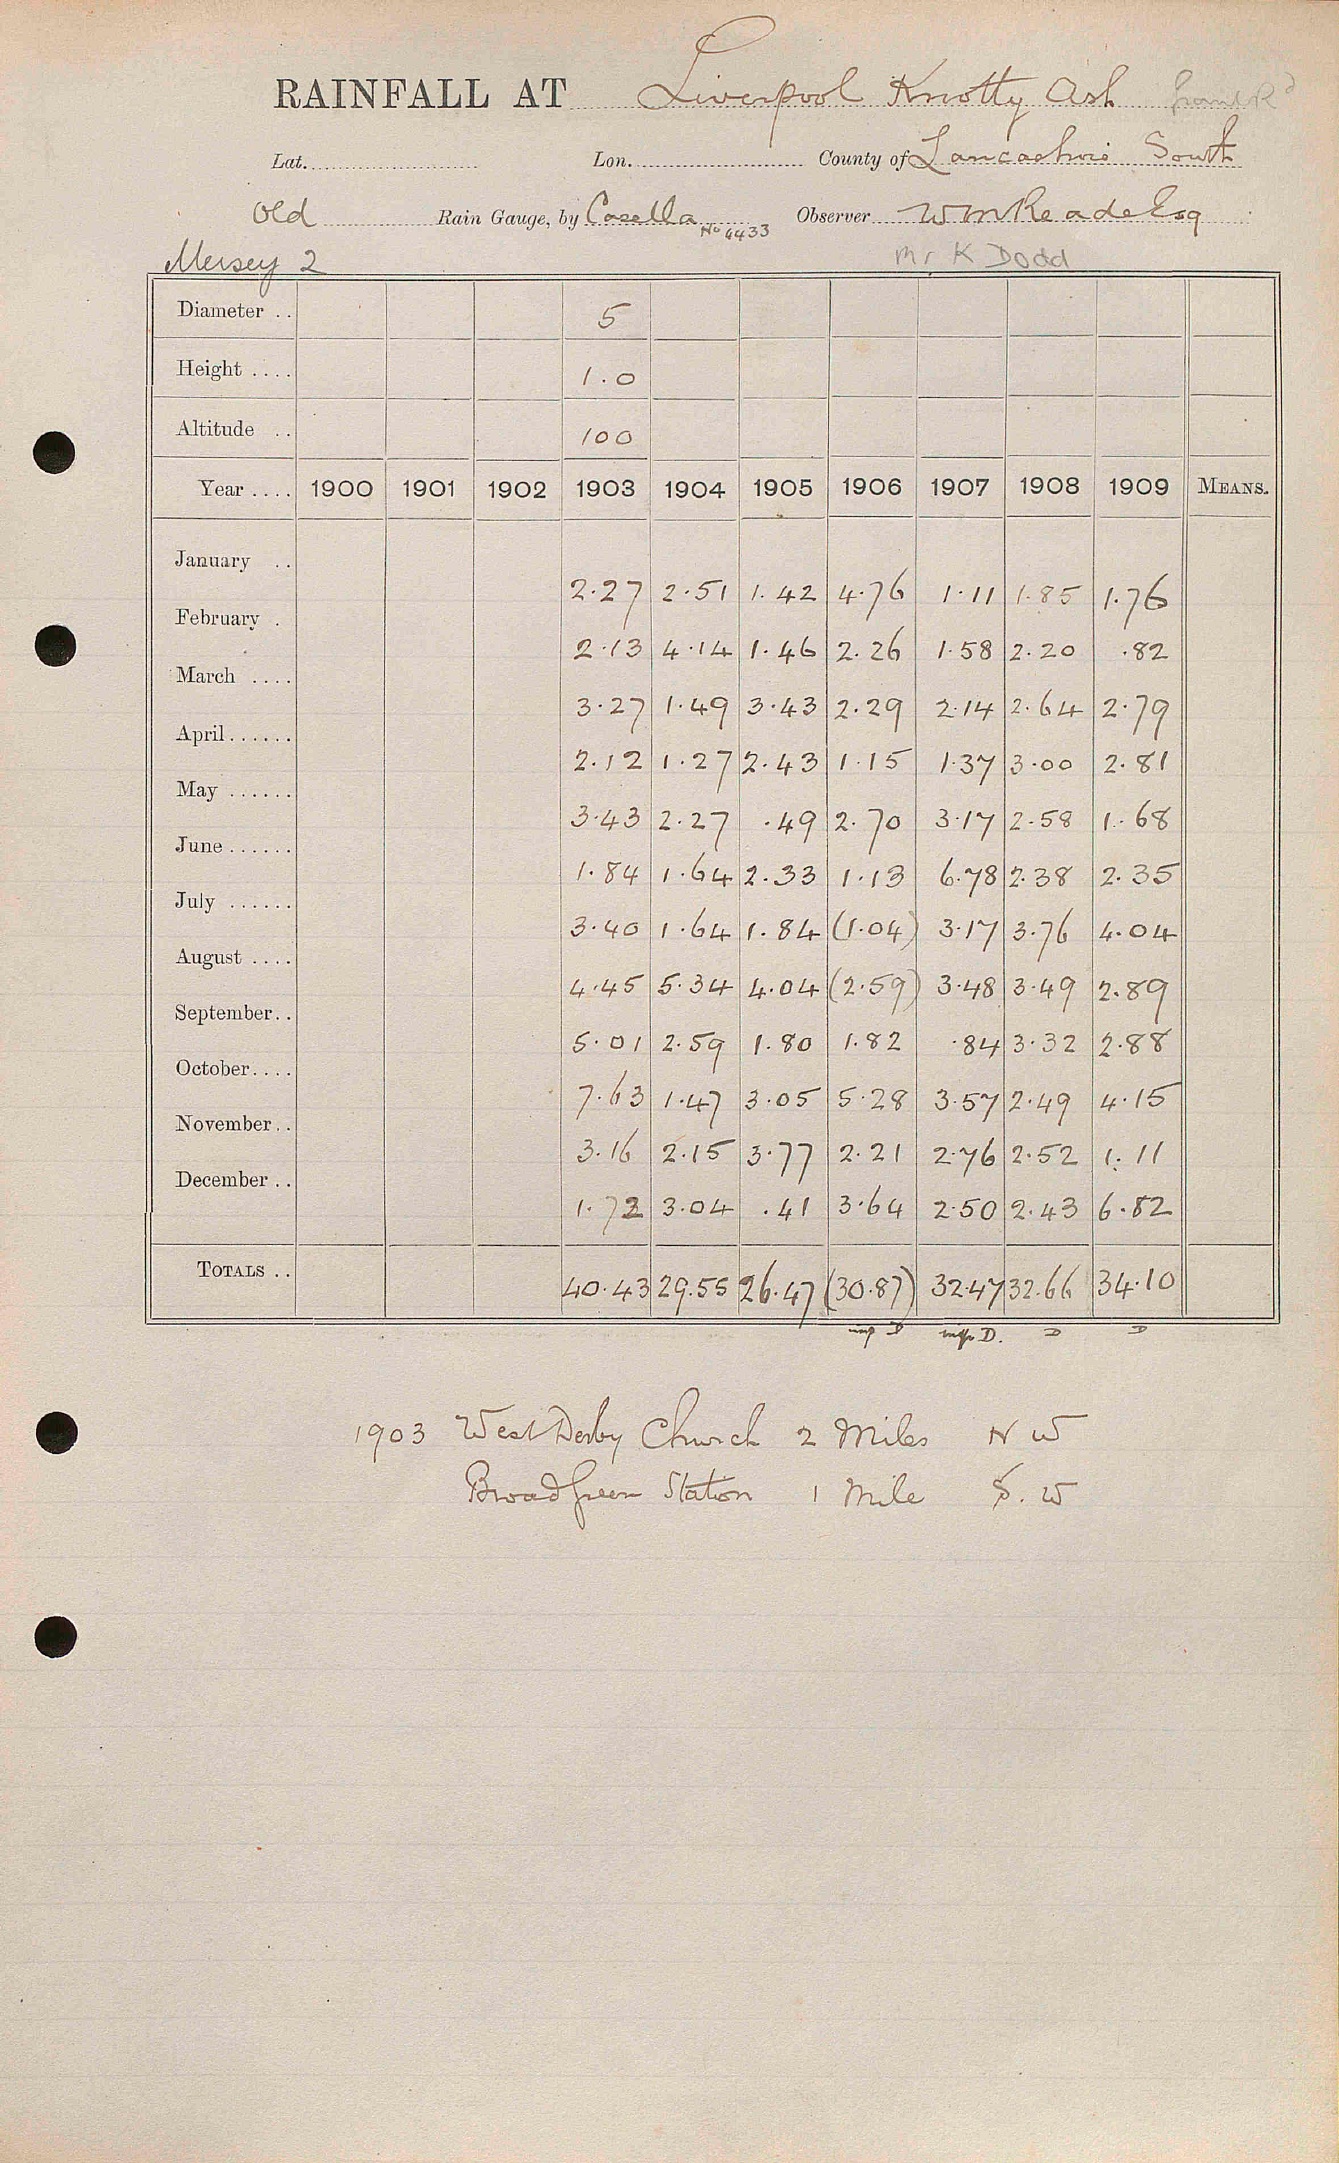 RAINFALL AT Liverpool Knotty Ash
Lat. Lon. County of Lancashire South
Old Rain Gauge, by Casella No 4433 Observer W M Reade Esq
Mersey 2 Mr K Dodd
Diameter .. 5
Height .... 1.0
Altitude .. 100
Year .... 1900 1901 1902 1903 1904 1905 1906 1907 1908 1909 MEANS.
January .. 2.27 2.51 1.42 4.76 1.11 1.85 1.76
February . 2.13 4.14 1.46 2.26 1.58 2.20 .82
March .... 3.27 1.49 3.43 2.29 2.14 2.64 2.79
April ...... 2.12 1.27 2.43 1.15 1.37 3.00 2.81
May ...... 3.43 2.27 .49 2.70 3.17 2.58 1.68
June ...... 1.84 1.64 2.33 1.13 6.78 2.38 2.35
July ...... 3.40 1.64 1.84 (1.04) 3.17 3.76 4.04
August .... 4.45 5.34 4.04 (2.59) 3.48 3.49 2.89
September .. 5.01 2.59 1.80 1.82 .84 3.32 2.88
October .... 7.63 1.47 3.05 5.28 3.57 2.49 4.15
November .. 3.16 2.15 3.77 2.21 2.76 2.52 1.11
December .. 1.72 3.04 .41 3.64 2.50 2.43 6.82
TOTALS .. 40.43 29.55 26.47 (30.87) 32.47 32.66 34.10
D D. D D
1903 West Derby Church 2 Miles N W
Broad Green Station 1 Mile S. W